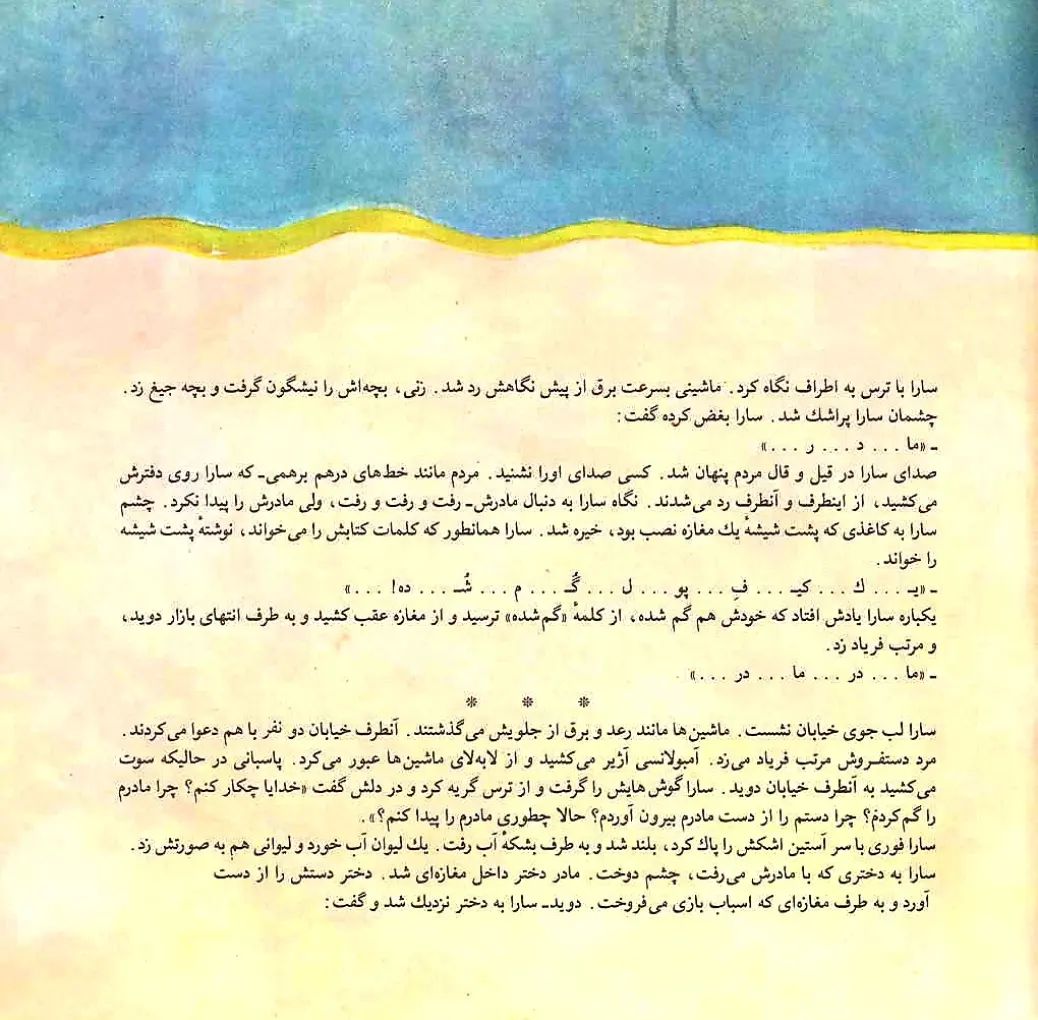 سارا با ترس به اطراف نگاه کرد. ماشینی بسرعت برق از پیش نگاهش رد شد. زنی، بچه‌اش را نیشگون گرفت و بچه جیغ زد.
چشمان سارا پراشك شد. سارا بغض کرده گفت:
ـ «ما . . . د . . . ر . . .»
صدای سارا در قیل و قال مردم پنهان شد. کسی صدای اورا نشنید. مردم مانند خط‌های درهم برهمی‌ـ که سارا روی دفترش
می‌کشید، از اینطرف و آنطرف رد می‌شدند. نگاه سارا به دنبال مادرش‌ـ رفت و رفت و رفت، ولی مادرش را پیدا نکرد. چشم
سارا به کاغذی که پشت شیشهٔ یك مغازه نصب بود، خیره شد. سارا همانطور که کلمات کتابش را می‌خواند، نوشتهٔ پشت شیشه
را خواند.
ـ «یـ . . . ك . . . کیـ . . . فِ . . . پو . . . ل . . . گُـ . . . م . . . شُـ . . . ده! . . .»
یکباره سارا یادش افتاد که خودش هم گم شده، از کلمهٔ «گم‌شده» ترسید و از مغازه عقب کشید و به طرف انتهای بازار دوید،
و مرتب فریاد زد.
ـ «ما . . . در . . . ما . . . در . . .»
❊ ❊ ❊
سارا لب جوی خیابان نشست. ماشین‌ها مانند رعد و برق از جلویش می‌گذشتند. آنطرف خیابان دو نفر با هم دعوا می‌کردند.
مرد دستفـروش مرتب فریاد می‌زد. آمبولانسی آژیر می‌کشید و از لابه‌لای ماشین‌ها عبور می‌کرد. پاسبانی در حالیکه سوت
می‌کشید به آنطرف خیابان دوید. سارا گوش‌هایش را گرفت و از ترس گریه کرد و در دلش گفت «خدایا چکار کنم؟ چرا مادرم
را گم‌کردم؟ چرا دستم را از دست مادرم بیرون آوردم؟ حالا چطوری مادرم را پیدا کنم؟».
سارا فوری با سر آستین اشکش را پاك کرد، بلند شد و به طرف بشکهٔ آب رفت. یك لیوان آب خورد و لیوانی هم به صورتش زد.
سارا به دختری که با مادرش می‌رفت، چشم دوخت. مادر دختر داخل مغازه‌ای شد. دختر دستش را از دست
آورد و به طرف مغازه‌ای که اسباب بازی می‌فروخت. دویدـ سارا به دختر نزدیك شد و گفت: